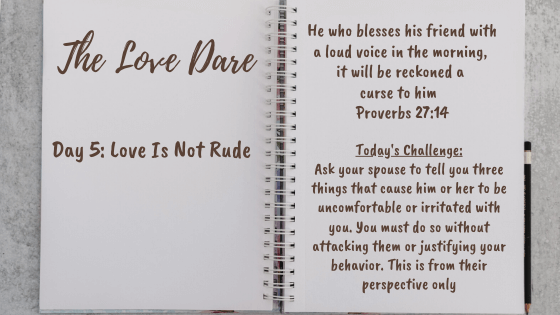 The Love Dare
Day 5: Love Is Not Rude
He who blesses his friend with
a loud voice in the morning,
it will be reckoned a
curse to him
Proverbs 27:14
Today's Challenge:
Ask your spouse to tell you three
things that cause him or her to be
uncomfortable or irritated with
you. You must do so without
attacking them or justifying your
behavior. This is from their
perspective only